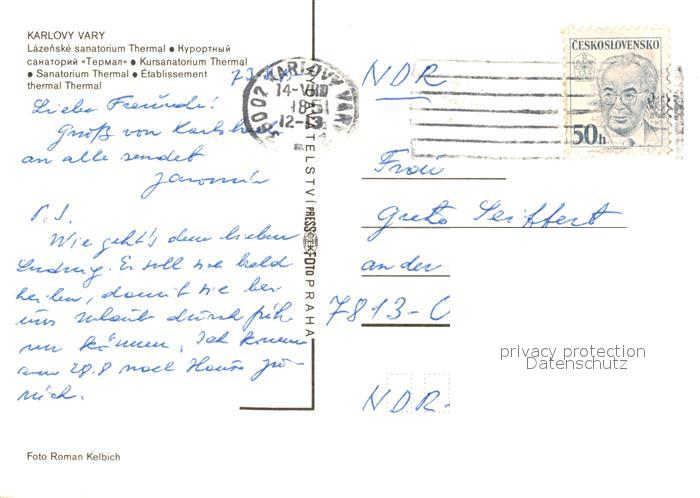 KARLOVY VARY
Lázeňské sanatorium Thermal ● Курортный
санаторий «Термал» ● Kursanatorium Thermal
● Sanatorium Thermal ● Établissement
thermal Thermal
Liebe Freunde!
Gruß von Karlsbad
an alle sendet
Jaromír
P. S.
Wie geht's dem lieben
Ludwig. Er soll
damit sie bei
uns Urlaub durchführ
en können. Ich komme
am 28.8 nach Hause zu-
rück.
Foto Roman Kelbich
VYDAVATELSTVÍ PRESSFOTO PRAHA
ČTK
KARLOVY VARY
14-VIII
12-13
ČESKOSLOVENSKO
50h
NDR
Frau
Greta Seiffert
an der
7813-
NDR
privacy protection
Datenschutz